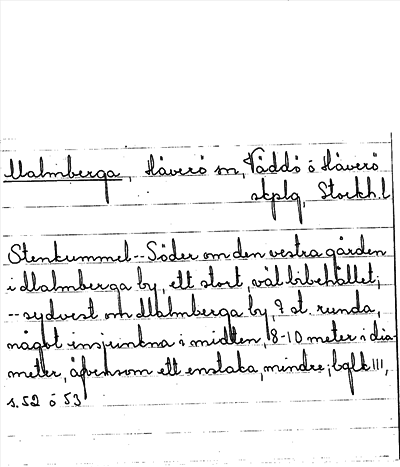 Malmberga, Häverö sn, Väddö o Häverö
skplg, Stockh.l
Stenkummel -- Söder om den vestra gården
i Malmberga by, ett stort, väl bibehållet;
-- sydvest om Malmberga by, 7 st. runda,
något insjunkna i midten, 8-10 meter i dia-
meter, äfvensom ett enstaka, mindre; bglk III,
s. 52 o 53